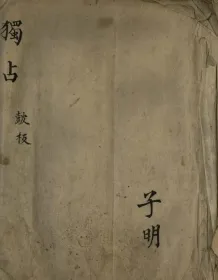 獨占
鼓板
子明